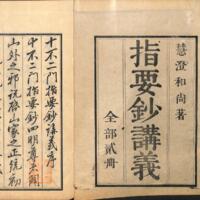 慧澄和尚著
指要鈔講義
全部貳冊
十不二門指要鈔講義序
十不二門指要鈔四明尊者闢
山外之邪說啓山家之正統初